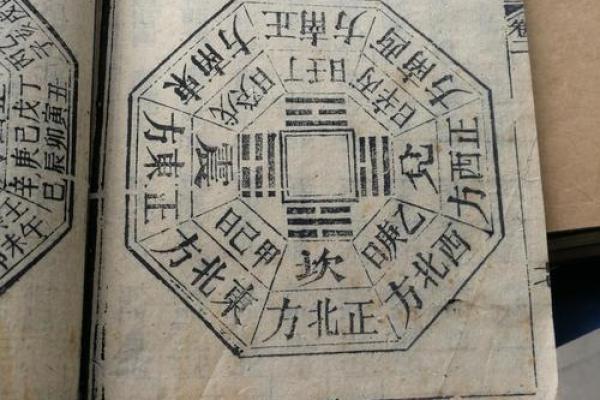 正南方
丁壬日
西南方
丙辛日
正西方
兌
西北方
乙庚日
正北方
坎
東北方
甲己日
正東方
震
東南方
戊癸日
卷二
丑寅卯辰巳
丁戊己庚辛